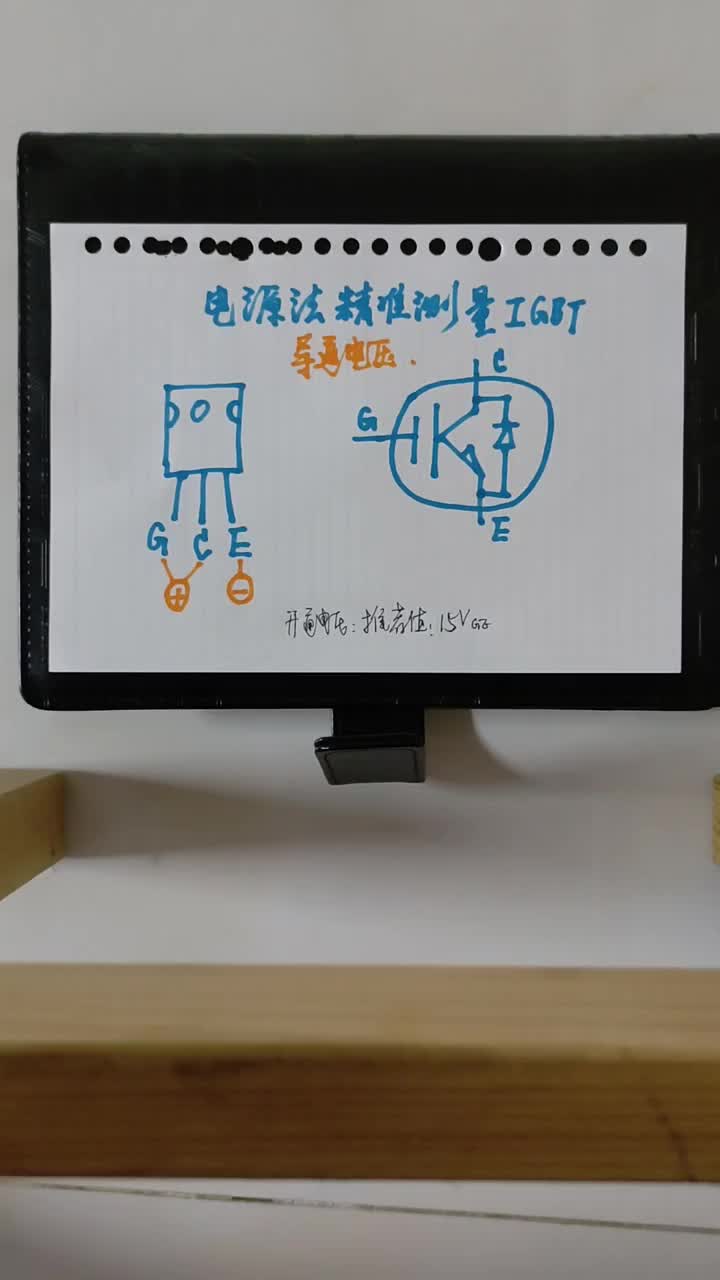 电源法精准测量IGBT
导通电压.
C
G
E
G C E
+ -
开通电压:推荐值:15V GE